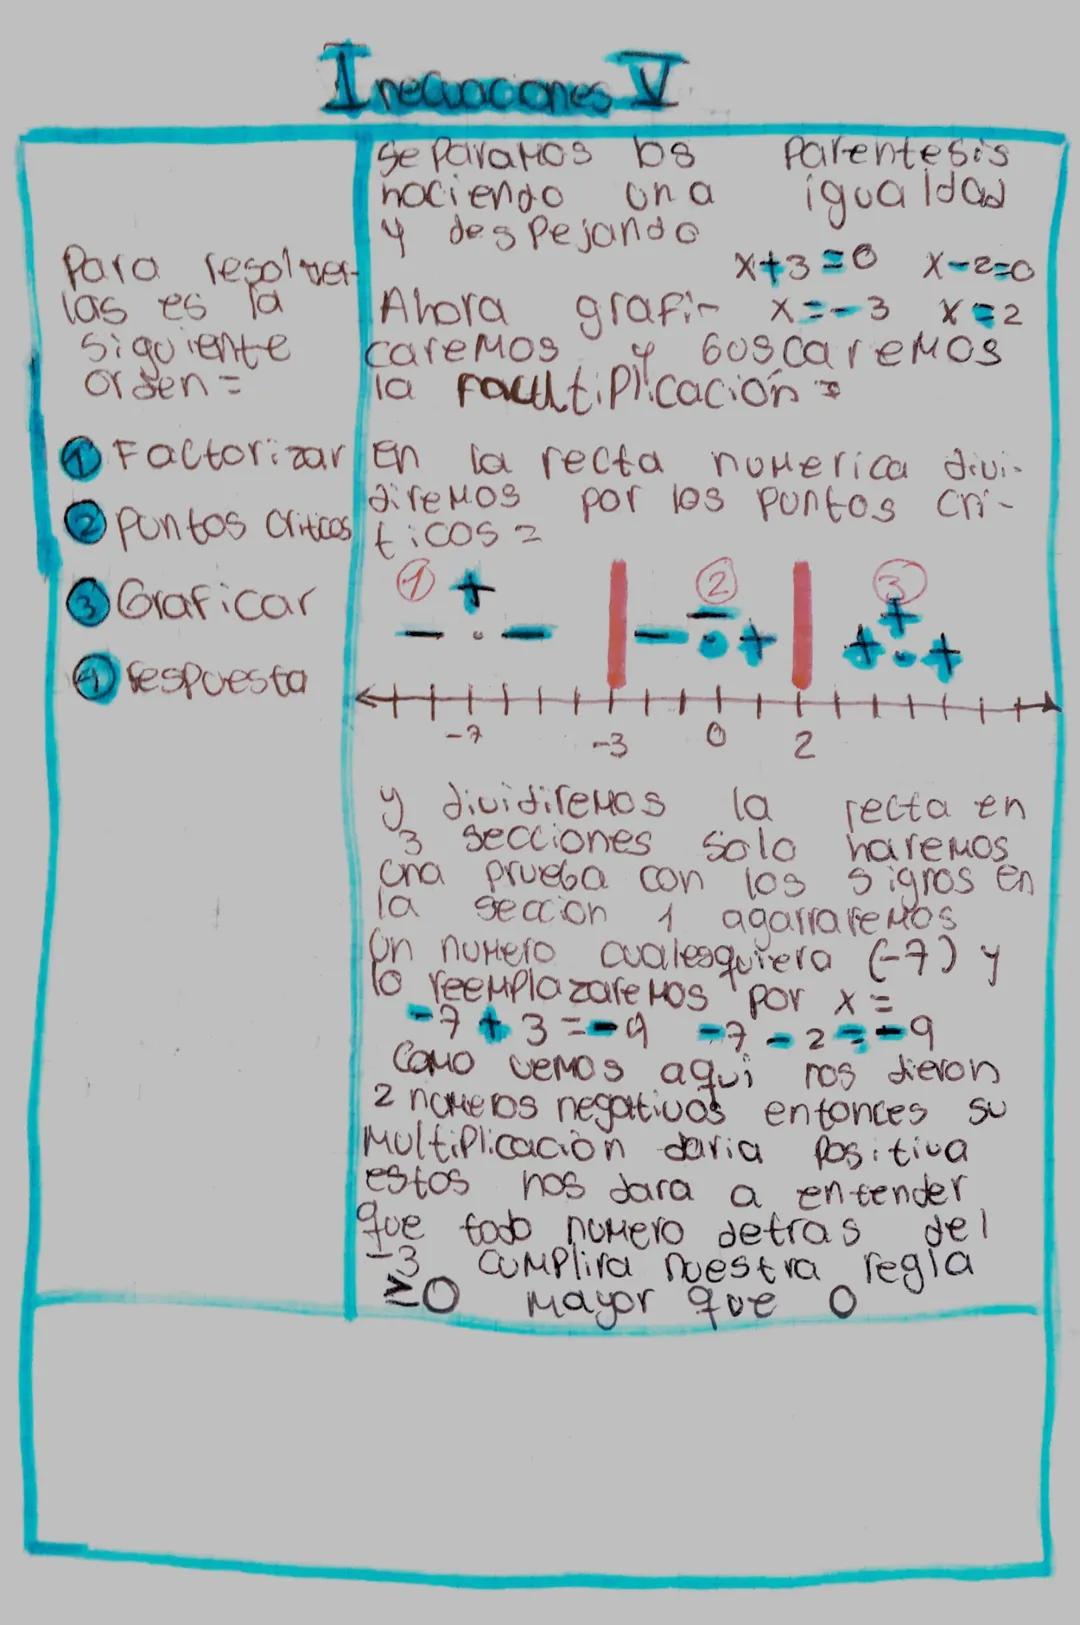 Inecuaciones V
Para resolver-
las es la
siguiente
orden =
1 Factorizar
2 puntos criticos
3 Graficar
4 respuesta
separamos los parentesis
haciendo una igualdad
y despejando
x+3=0 x-2=0
Ahora grafi- x=-3 x=2
caremos y buscaremos
la facultiplicación =
En la recta numerica divi-
diremos por los puntos cri-
ticos =
1 + 2 - 3 +
- . - - . + + . +
-7 -3 0 2
y dividiremos la recta en
3 secciones solo haremos
una prueba con los signos en
la seccion 1 agarraremos
un numero cualesquiera (-7) y
lo reemplazaremos por x =
-7+3=-4 -7-2=-9
como vemos aqui nos dieron
2 numeros negativos entonces su
multiplicación daria positiva
estos nos dara a entender
que todo numero detras del
-3 cumplira nuestra regla
≥0 mayor que 0